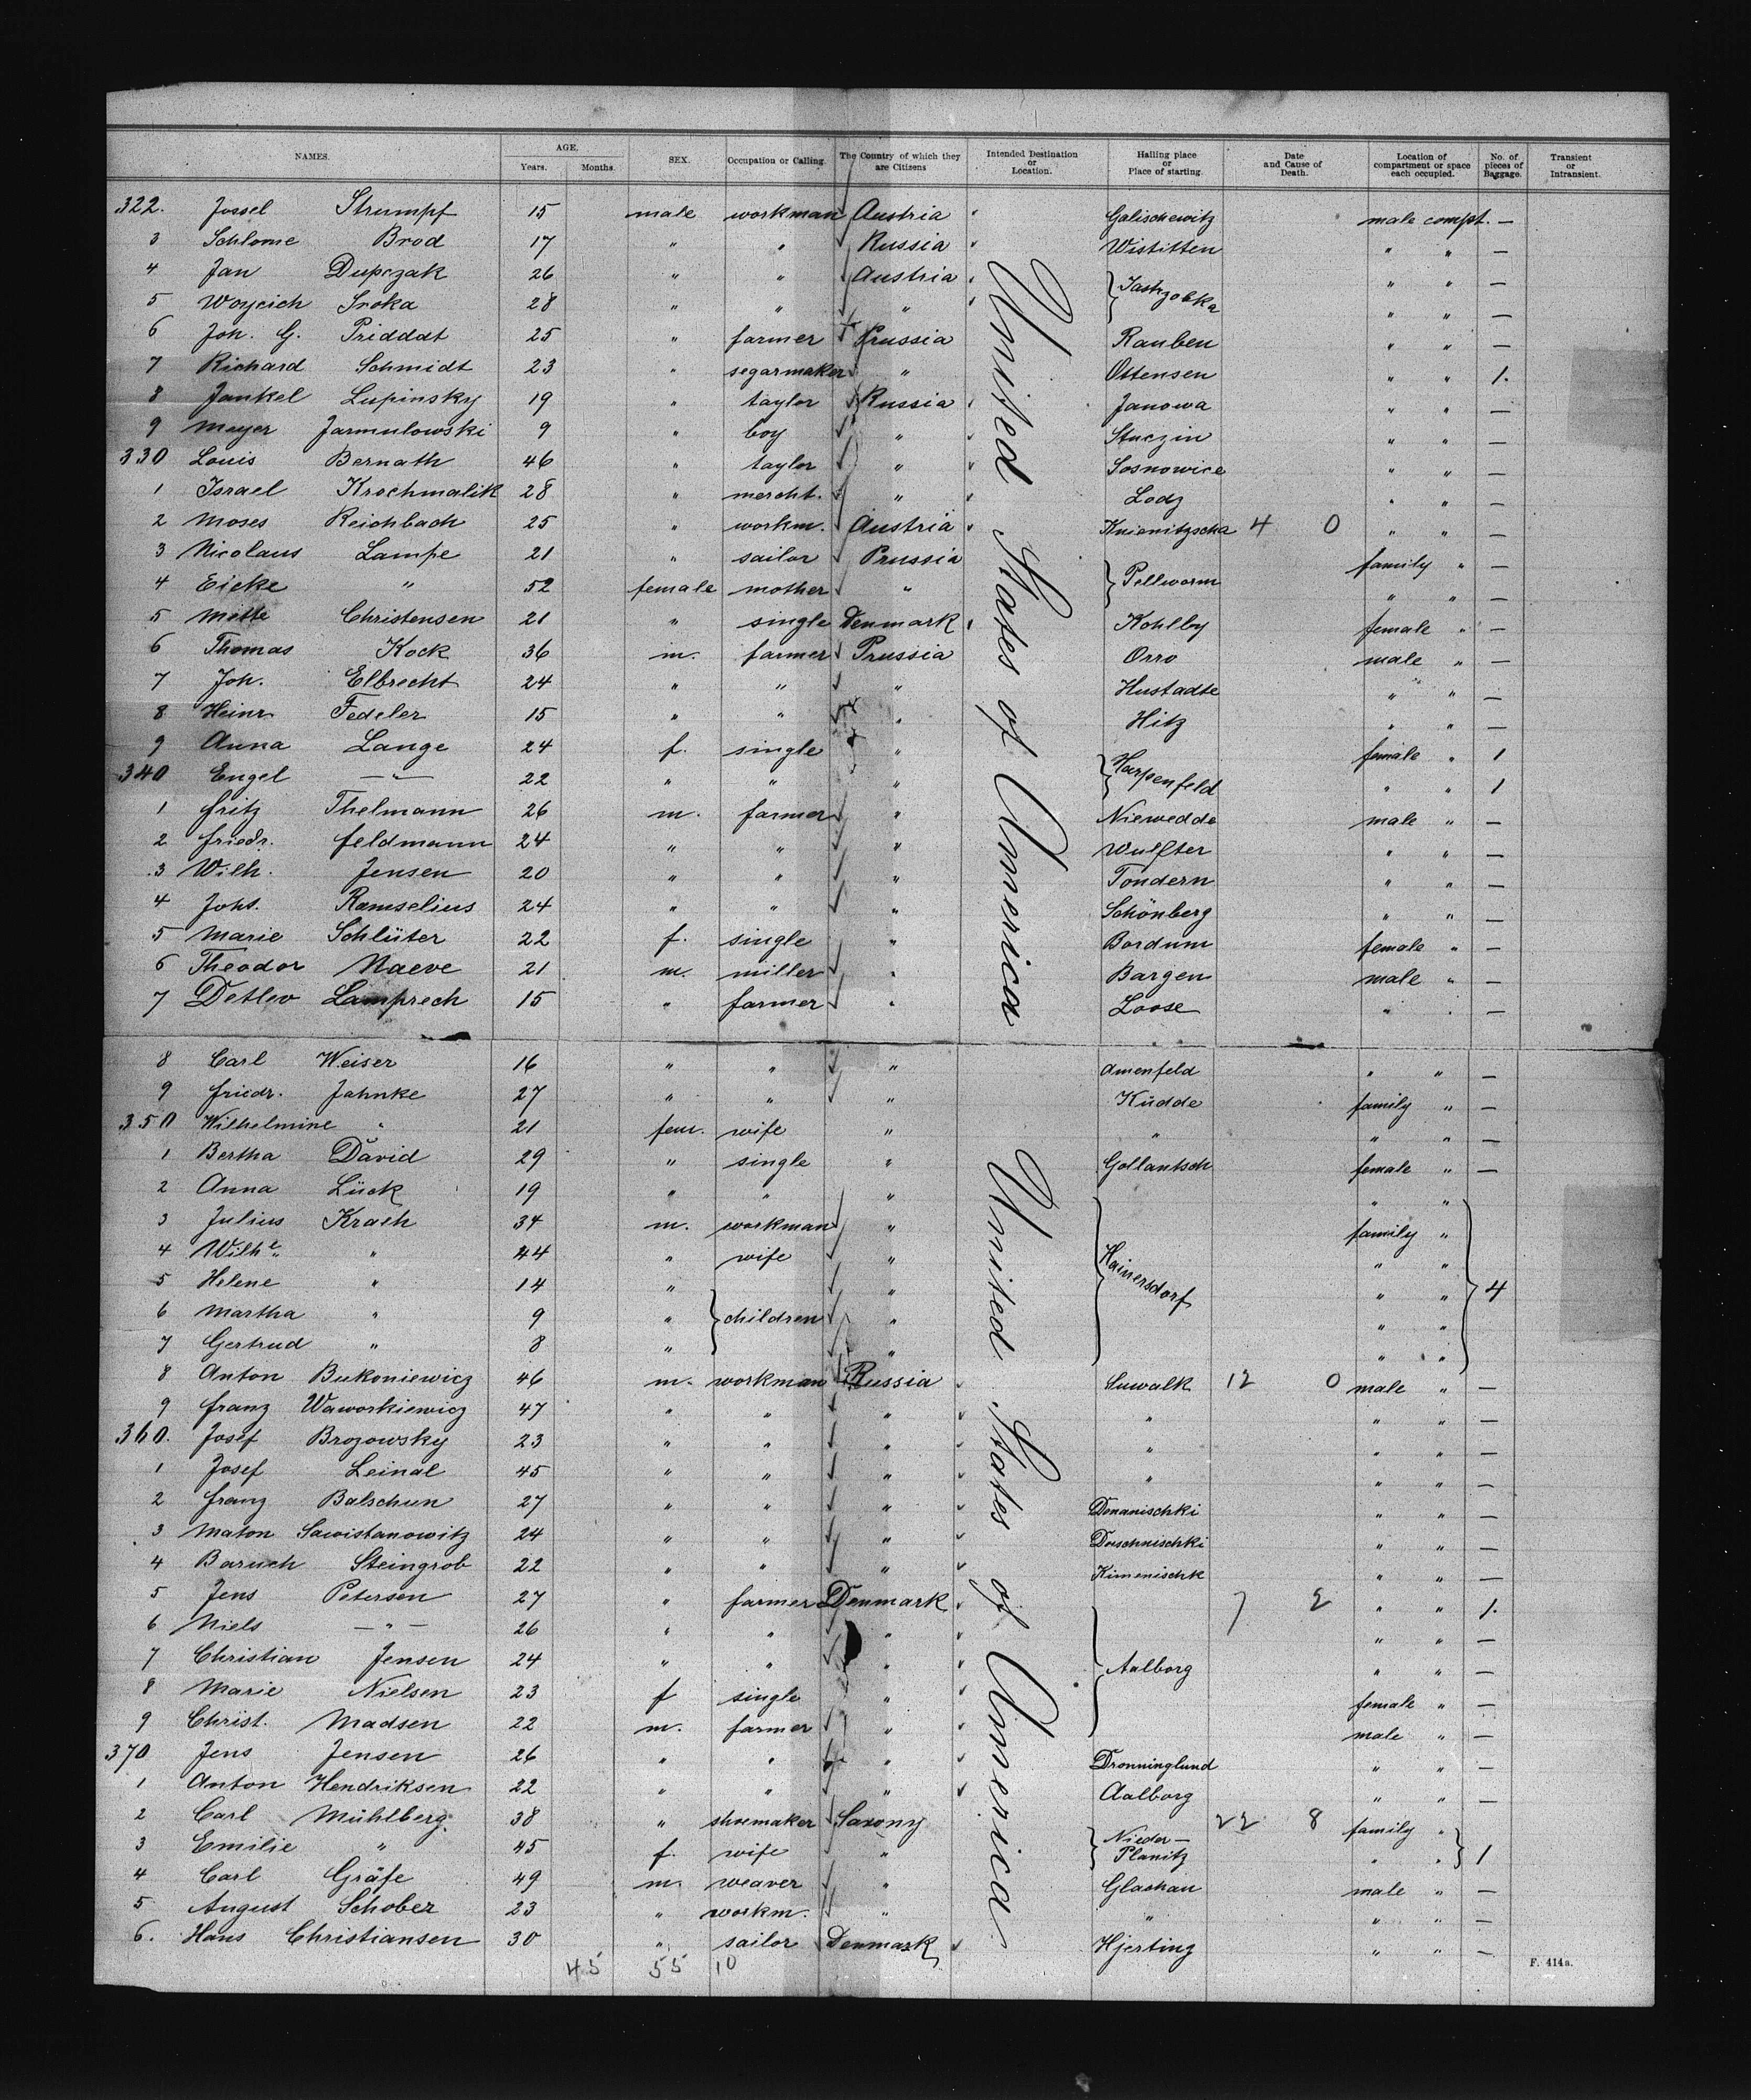 NAMES. AGE. SEX. Occupation or Calling. The Country of which they are Citizens Intended Destination or Location. Hailing place or Place of starting. Date and Cause of Death. Location of compartment or space each occupied. No. of pieces of Baggage. Transient or Intransient.
Years. Months.
322. Jossel Strumpf 15 male workman Austria Galischewitz male compt. —
3 Schlome Brod 17 " " Russia Wistitten " " —
4 Jan Dupczak 26 " " Austria } " " —
5 Woyciech Sroka 28 " " " " " —
6 Joh. G. Priddat 25 " farmer Prussia Rauben " " —
7 Richard Schmidt 23 " segarmaker " Ottensen " " 1.
8 Jankel Lupinsky 19 " taylor Russia Janowa " " —
9 Meyer Jarmulowski 9 " boy " Stuczin " " —
330 Louis Bernath 46 " taylor " Sosnowice " " —
1 Israel Krochmalik 28 " mercht. " Lodz " " —
2 Moses Reichbach 25 " workm. Austria Knienitzscha 4 0 " " —
3 Nicolaus Lampe 21 " sailor Prussia } Pellworm family " —
4 Eicke " 52 female mother " " " —
5 Mette Christensen 21 " single Denmark Kohlby female " —
6 Thomas Kock 36 m. farmer Prussia Orro male " —
7 Joh. Elbrecht 24 " " " Hustadte " " —
8 Heinr. Fedeler 15 " " " Hitz " " —
9 Anna Lange 24 f. single " } Harpenfeld female " 1
340 Engel —"— 22 " " " " " 1
1 Fritz Thelmann 26 m. farmer " Niewedde male " —
2 Friedr. Feldmann 24 " " " Wulfter " " —
3 Wilh. Jensen 20 " " " Tondern " " —
4 Johs. Ramselius 24 " " " Schönberg " " —
5 Marie Schlüter 22 f. single " Bordum female " —
6 Theodor Naeve 21 m. miller " Bargen male " —
7 Detlev Lamprech 15 " farmer " Loose " " —
United States of America
8 Carl Weiser 16 " " " Amenfeld " " —
9 Friedr. Jahnke 27 " " " Küdde family " —
350 Wilhelmine " 21 fem. wife " " " " —
1 Bertha David 29 " single " Gollantsch female " —
2 Anna Lück 19 " " " " "
3 Julius Krach 34 m. workman " } Hainersdorf family " } 4
4 Wilhe. " 44 " wife " " "
5 Helene " 14 " } children " " "
6 Martha " 9 " " " "
7 Gertrud " 8 " " " "
8 Anton Bukoniewicz 46 m. workman Russia Suwalk 12 0 male " —
9 Franz Waworkiewicz 47 " " " " " " —
360. Josef Brozowsky 23 " " " " " " —
1 Josef Leinal 45 " " " " " " —
2 Franz Balschun 27 " " " Dmanischki " " —
3 Maton Sawistanowitz 24 " " " Duschnischki " " —
4 Baruch Steingrob 22 " " " Kimenischk " " —
5 Jens Petersen 27 " farmer Denmark } Aalborg 7 2 " " 1.
6 Niels —"— 26 " " " " " —
7 Christian Jensen 24 " " " " " —
8 Marie Nielsen 23 f single " female " —
9 Christ. Madsen 22 m. farmer " male " —
370 Jens Jensen 26 " " " Dronninglund " " —
1 Anton Hendriksen 22 " " " Aalborg " " —
2 Carl Mühlberg 38 " shoemaker Saxony } Nieder-Planitz 22 8 family " } 1
3 Emilie " 45 f. wife " " "
4 Carl Gräfe 49 m. weaver " Glachau male " —
5 August Schober 23 " workm. " " " " —
6. Hans Christiansen 30 " sailor Denmark Hjerting " " —
United States of America
45 55 10
F. 414a.